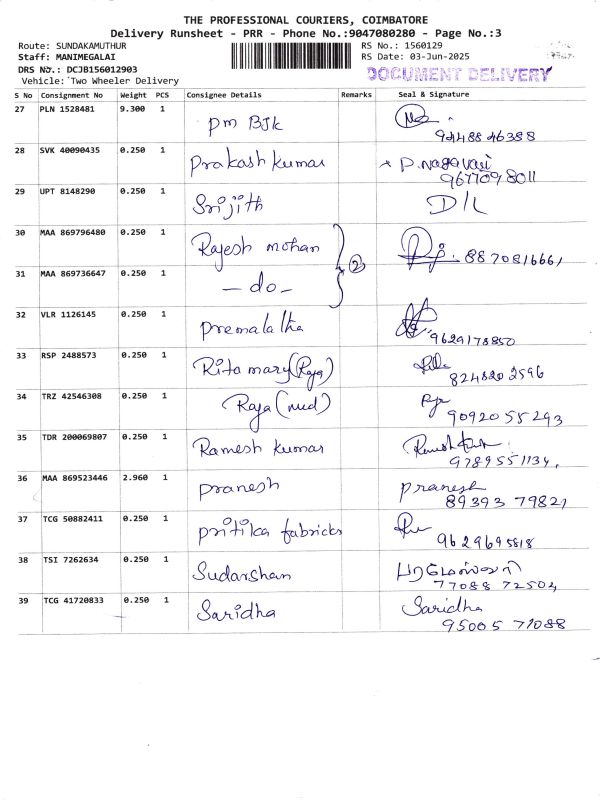 THE PROFESSIONAL COURIERS, COIMBATORE
Delivery Runsheet - PRR - Phone No.:9047080280 - Page No.:3
Route: SUNDAKAMUTHUR
Staff: MANIMEGALAI
DRS No.: DCJB156012903
Vehicle: Two Wheeler Delivery
RS No.: 1560129
RS Date: 03-Jun-2025
DOCUMENT DELIVERY
S No Consignment No Weight PCS Consignee Details Remarks Seal & Signature
27 PLN 1528481 9.300 1 pm BJk
9448846388
28 SVK 40090435 0.250 1 prakash kumar P. nagavari
9677098011
29 UPT 8148290 0.250 1 Srijith D/L
30 MAA 869796480 0.250 1 Rajesh mohan 8870816661
31 MAA 869736647 0.250 1 - do - 2
32 VLR 1126145 0.250 1 premalatha
9629178850
33 RSP 2488573 0.250 1 Rita mary (Raja)
8248202596
34 TRZ 42546308 0.250 1 Raja (nud)
9092055293
35 TDR 200069807 0.250 1 Ramesh kumar
9789551134,
36 MAA 869523446 2.960 1 pranesh pranesh
89393 79821
37 TCG 50882411 0.250 1 pritika fabricks
9629695818
38 TSI 7262634 0.250 1 Sudarshan
77088 72504
39 TCG 41720833 0.250 1 Saridha Saridha
95005 71088